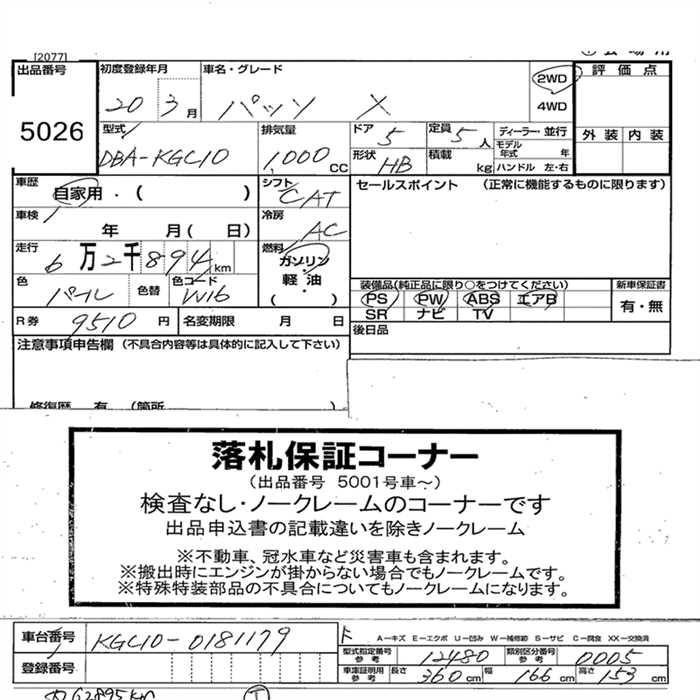 [2077]
出品番号 初度登録年月 車名・グレード 2WD 評価点
20 3月 パッソ X 4WD
5026 外装 内装
型式 排気量 ドア 定員 ディーラー・並行
DBA-KGC10 1,000CC 5 5人 モデル年式 年
形状 HB 積載 kg ハンドル 左・右
車歴 自家用・( ) シフト CAT セールスポイント (正常に機能するものに限ります)
車検 年 月(日) 冷房 AC
走行 6万2千894km 燃料 ガソリン・軽油・( )
色 パール 色替 色コード W16 装備品(純正品に限り○をつけてください) 新車保証書
PS PW ABS エアB 有・無
SR ナビ TV
R券 9510円 名変期限 月 日 後日品
注意事項申告欄 (不具合内容等は具体的に記入して下さい)
修復歴 有 (箇所 )
落札保証コーナー
(出品番号 5001号車~)
検査なし・ノークレームのコーナーです
出品申込書の記載違いを除きノークレーム
※不動車、冠水車など災害車も含まれます。
※搬出時にエンジンが掛からない場合でもノークレームです。
※特殊特装部品の不具合についてもノークレームになります。
車台番号 KGC10-0181179 A−キズ E−エクボ U−凹み W−補修跡 S−サビ C−腐食 XX−交換済
型式指定番号 参考 12480 類別区分番号 参考 0005
登録番号 車庫証明用 参考 長さ 360cm 幅 166cm 高さ 153cm
62895km